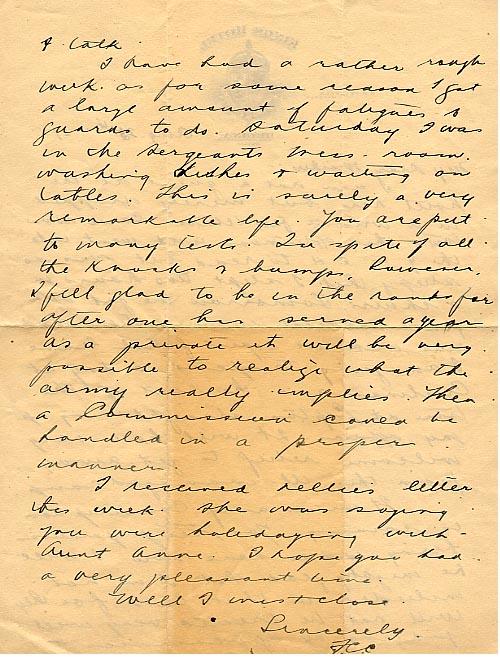 & talk.
I have had a rather rough
week. as for some reason I got
a large amount of fatigues &
guards to do. Saturday I was
in the Sergeants Mess. room.
washing dishes & waiting on
tables. This is surely a very
remarkable life. You are put
to many tests. In spite of all
the Knocks & bumps, however,
I fell glad to be in the ranks for
after one has served a year
as a private it will be very
possible to realize what the
army really implies. Then
a Commission could be
handled in a proper
manner.
I received Nellies letter
this week. She was saying
you were holidaying with
Aunt Anne. I hope you had
a very pleasant time.
Well I must close.
Sincerely.